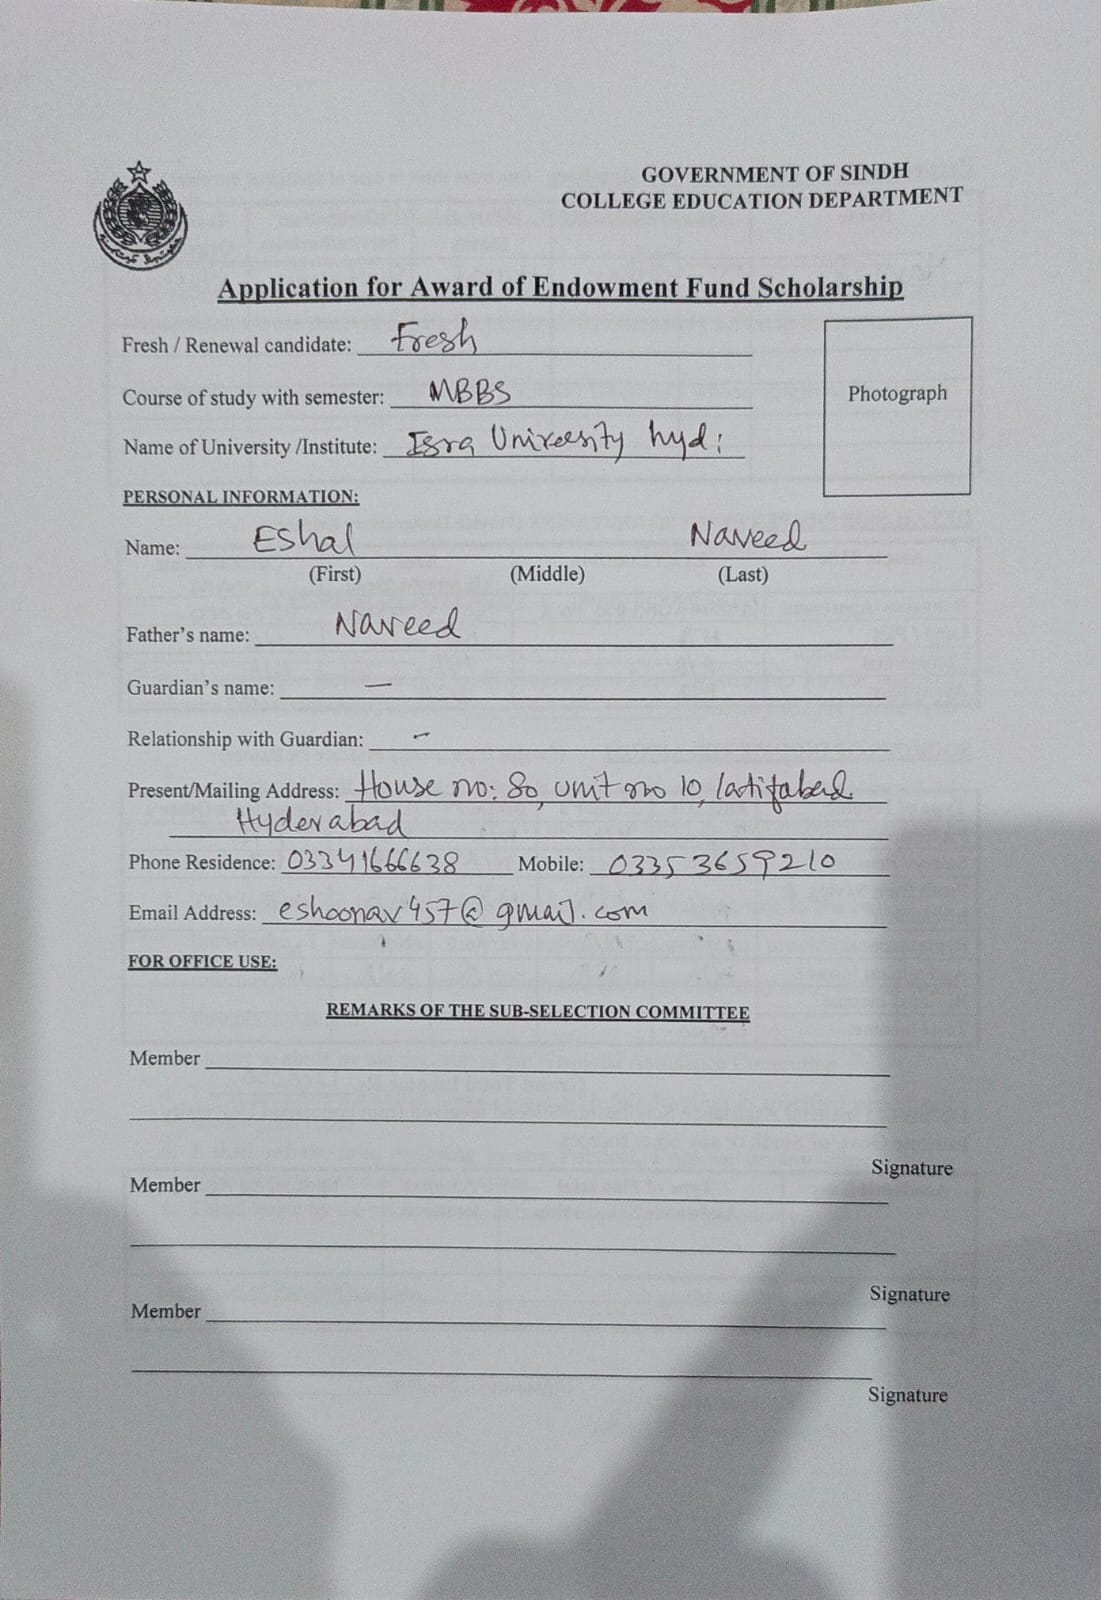 GOVERNMENT OF SINDH
COLLEGE EDUCATION DEPARTMENT
Application for Award of Endowment Fund Scholarship
Fresh / Renewal candidate: Fresh
Course of study with semester: MBBS
Photograph
Name of University /Institute: Isra University hyd:
PERSONAL INFORMATION:
Name: Eshal Naveed
(First) (Middle) (Last)
Father's name: Naveed
Guardian's name: —
Relationship with Guardian: -
Present/Mailing Address: House no: 80, unit no 10, latifabad
Hyderabad
Phone Residence: 03341666638 Mobile: 03353659210
Email Address: eshoonav457@gmail.com
FOR OFFICE USE:
REMARKS OF THE SUB-SELECTION COMMITTEE
Member
Signature
Member
Signature
Member
Signature